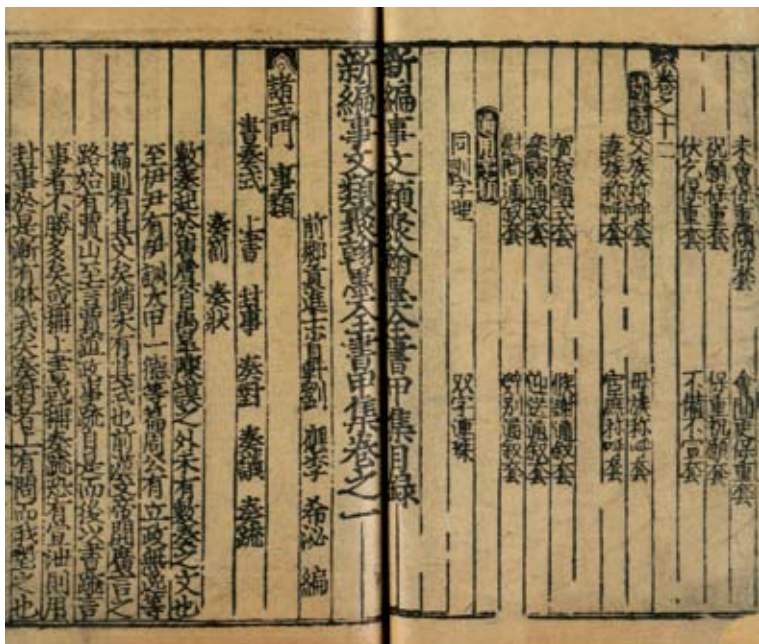 未會保重傾仰套 會間更保重套
祝願保重套 保重祝願套
伏乞保重套 不備不宣套
卷之十二
父族稱呼套 母族稱呼套
妻族稱呼套 官廣稱呼套
賀敘通式套 候謝通敘套
參謁通敘套 迎送通敘套
慰問通敘套 餞別通敘套
活用新
同訓字理 双字連珠
新編事文類聚翰墨全書甲集目錄
新編事文類聚翰墨全書甲集卷之一
前鄉貢進士省軒劉 應李 希泌 編
諸式門 事類
書奏式 上書 封事 奏對 奏議 奏疏
奏劄 奏狀
敷奏起於唐虞自禹皐陳謨之外未有敷奏之文也
至伊尹有伊訓太甲一德等篇周公有立政無逸等
篇則有其文矣猶未有其式也前漢文帝開廣言之
路始有賈山至言賈誼政事疏自是而後父書疏言
事者不勝多矣或稱上書或稱奏疏恐有宣泄則用
封事於是漸有體式矣奏對者上有問而我對之也